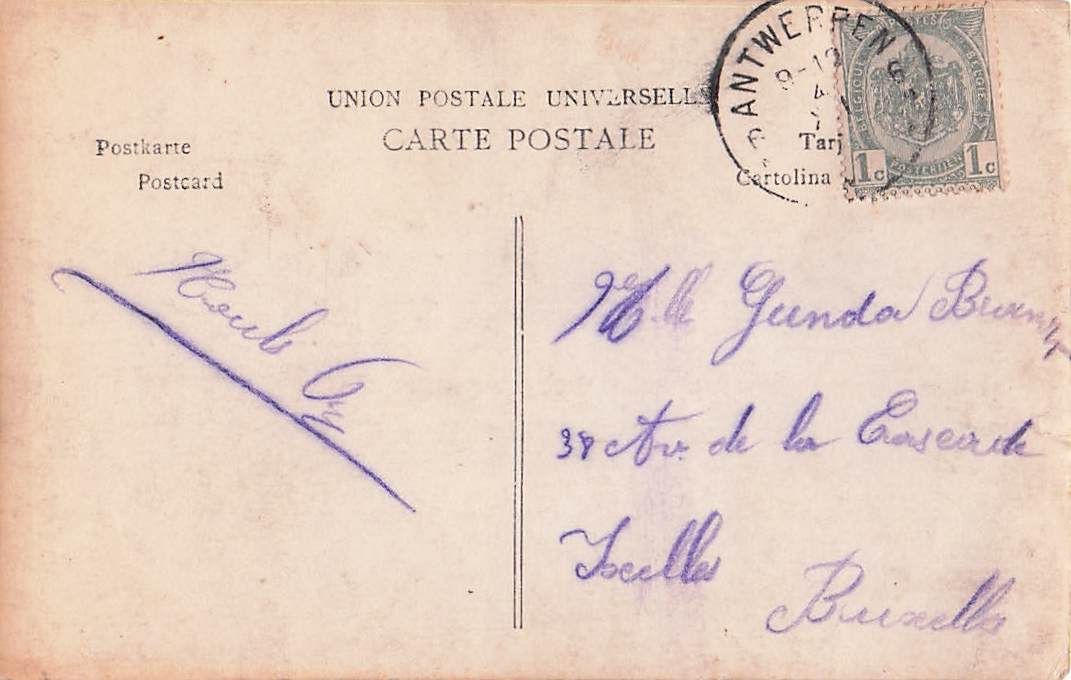 UNION POSTALE UNIVERSELLE
CARTE POSTALE
Postkarte
Postcard
Tarj
Cartolina
ANTWERPEN 6
POSTES
BELGIQUE
1c 1c
Mlle Gunda
38 Av. de la Cascade
Ixelles
Bruxelles